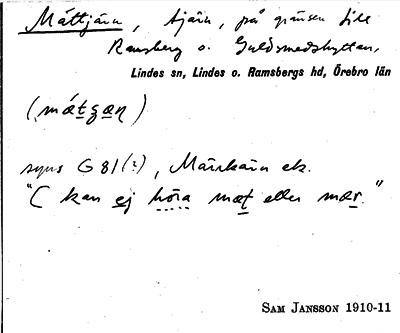 Mättjärn, tjärn, på gränsen till
Ramsberg o. Guldsmedshyttan,
Lindes sn, Lindes o. Ramsbergs hd, Örebro län
syns G 81(?), Märrkärn ek.
"( kan ej höra mæt eller mær."
SAM JANSSON 1910-11